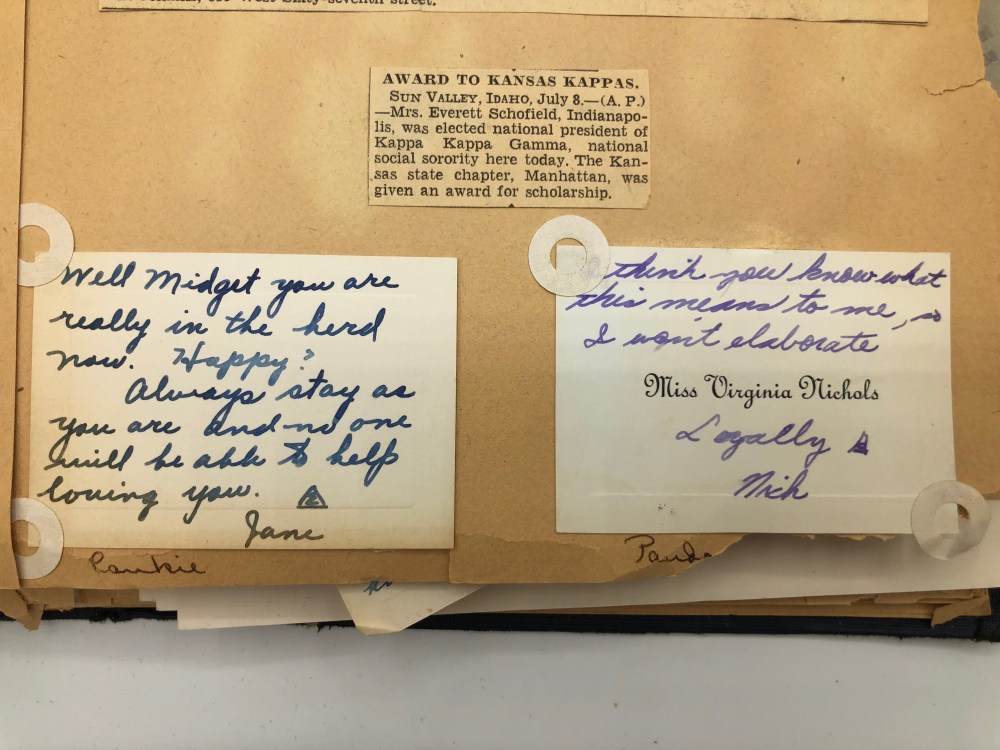 West Sixty-seventh street.
AWARD TO KANSAS KAPPAS.
SUN VALLEY, IDAHO, July 8.—(A. P.)
—Mrs. Everett Schofield, Indianapo-
lis, was elected national president of
Kappa Kappa Gamma, national
social sorority here today. The Kan-
sas state chapter, Manhattan, was
given an award for scholarship.
Well Midget you are
really in the herd
now. Happy?
Always stay as
you are and no one
will be able to help
loving you.
Jane
think you know what
this means to me, so
I won't elaborate
Miss Virginia Nichols
Loyally
Nich